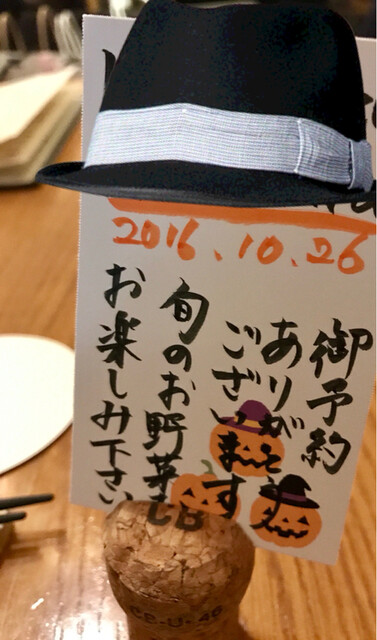 2016.10.26
御予約
ありがとう
ございます
旬のお野菜を
お楽しみ下さい
CE-U.46